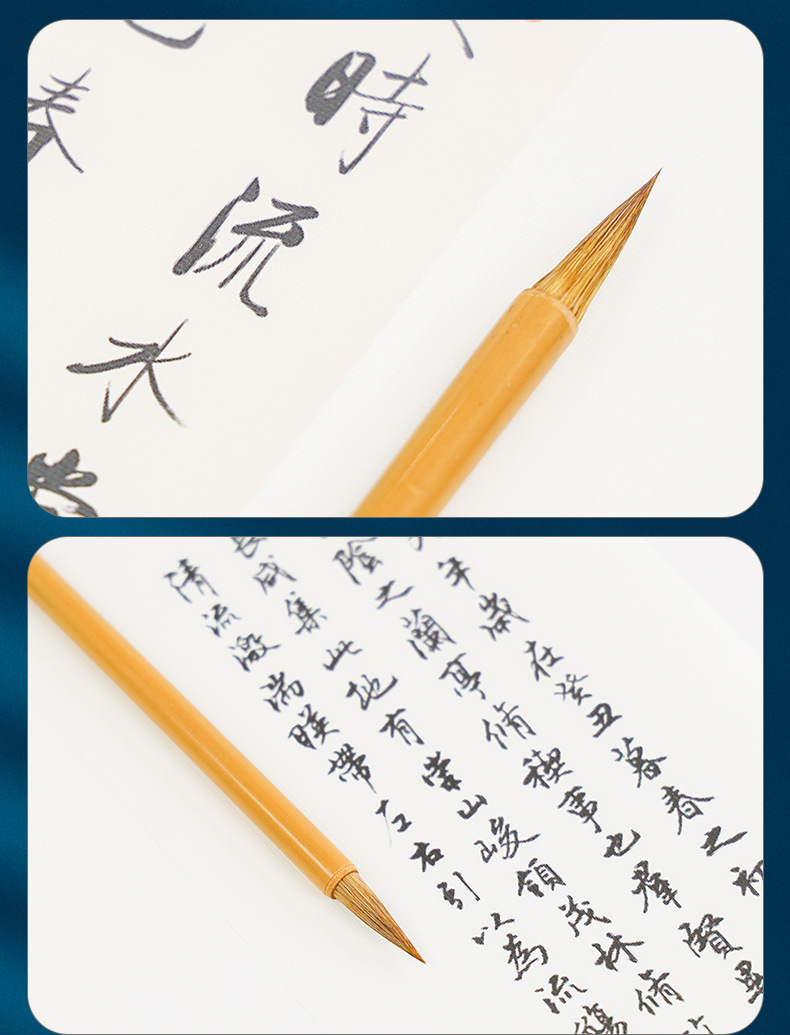 時流水
春
年歲在癸丑暮春之初
陰之蘭亭脩稧事也羣賢畢
咸集此地有崇山峻領茂林脩
清流激湍暎帶左右引以為流觴